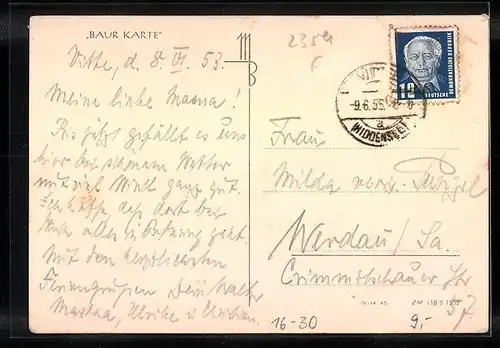 „BAUR KARTE"
2354
Vitte, d. 8. VI. 53.
Meine liebe Mama!
Bis jetzt gefällt es uns
hier bei schönem Wetter
mit viel Wind ganz gut.
Ich hoffe, daß dort bei
alles in Ordnung geht.
Mit den herzlichsten
Feriengrüßen Dein Walter
Ulrike u. Christian.
12
DEUTSCHE DEMOKRATISCHE REPUBLIK
9.6.55
a
HIDDENSEE
Frau
Milda verw.
Werdau/Sa.
Crimmitschauer Str
37.
IV-14-45
16-30
9,-